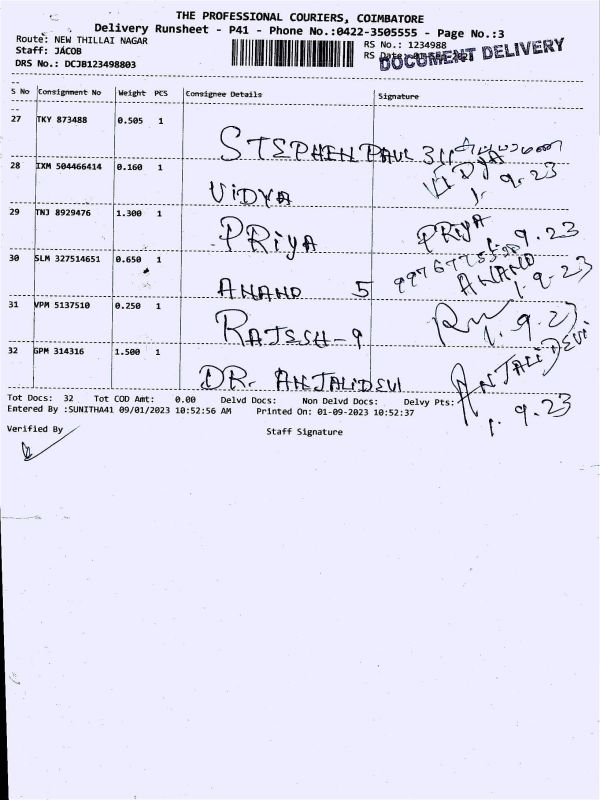 THE PROFESSIONAL COURIERS, COIMBATORE
Delivery Runsheet - P41 - Phone No.:0422-3505555 - Page No.:3
Route: NEW THILLAI NAGAR
Staff: JACOB
DRS No.: DCJB123498803
RS No.: 1234988
RS Date:
DOCUMENT DELIVERY
S No Consignment No Weight PCS Consignee Details Signature
27 TKY 873488 0.505 1 STEPHEN PAUL 311
28 IXM 504466414 0.160 1 ViDYA VIDYA 1.9.23
29 TNJ 8929476 1.300 1 PRiYA PRIYA 1.9.23
30 SLM 327514651 0.650 1 ANAND 5 ANAND 1.9.23
31 VPM 5137510 0.250 1 RAJESH-9 1.9.23
32 GPM 314316 1.500 1 DR. ANJALIDEVI ANJALI DEVI 1.9.23
Tot Docs: 32 Tot COD Amt: 0.00 Delvd Docs: Non Delvd Docs: Delvy Pts:
Entered By :SUNITHA41 09/01/2023 10:52:56 AM Printed On: 01-09-2023 10:52:37
Verified By Staff Signature